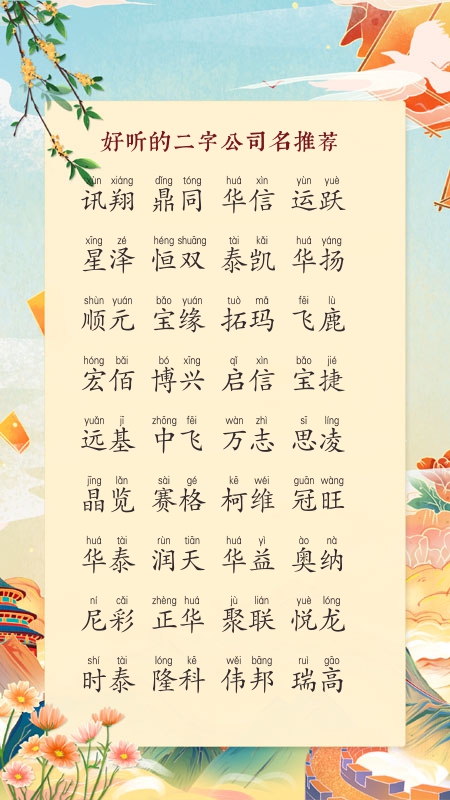 好听的二字公司名推荐
xùn xiáng dǐng tóng huá xìn yùn yuè
讯翔 鼎同 华信 运跃
xīng zé héng shuāng tài kǎi huá yáng
星泽 恒双 泰凯 华扬
shùn yuán bǎo yuán tuò mǎ fēi lù
顺元 宝缘 拓玛 飞鹿
hóng bǎi bó xīng qǐ xìn bǎo jié
宏佰 博兴 启信 宝捷
yuǎn jī zhōng fēi wàn zhì sī líng
远基 中飞 万志 思凌
jīng lǎn sài gé kē wéi guān wàng
晶览 赛格 柯维 冠旺
huá tài rùn tiān huá yì ào nà
华泰 润天 华益 奥纳
ní cǎi zhèng huá jù lián yuè lóng
尼彩 正华 聚联 悦龙
shí tài lóng kē wěi bāng ruì gāo
时泰 隆科 伟邦 瑞高